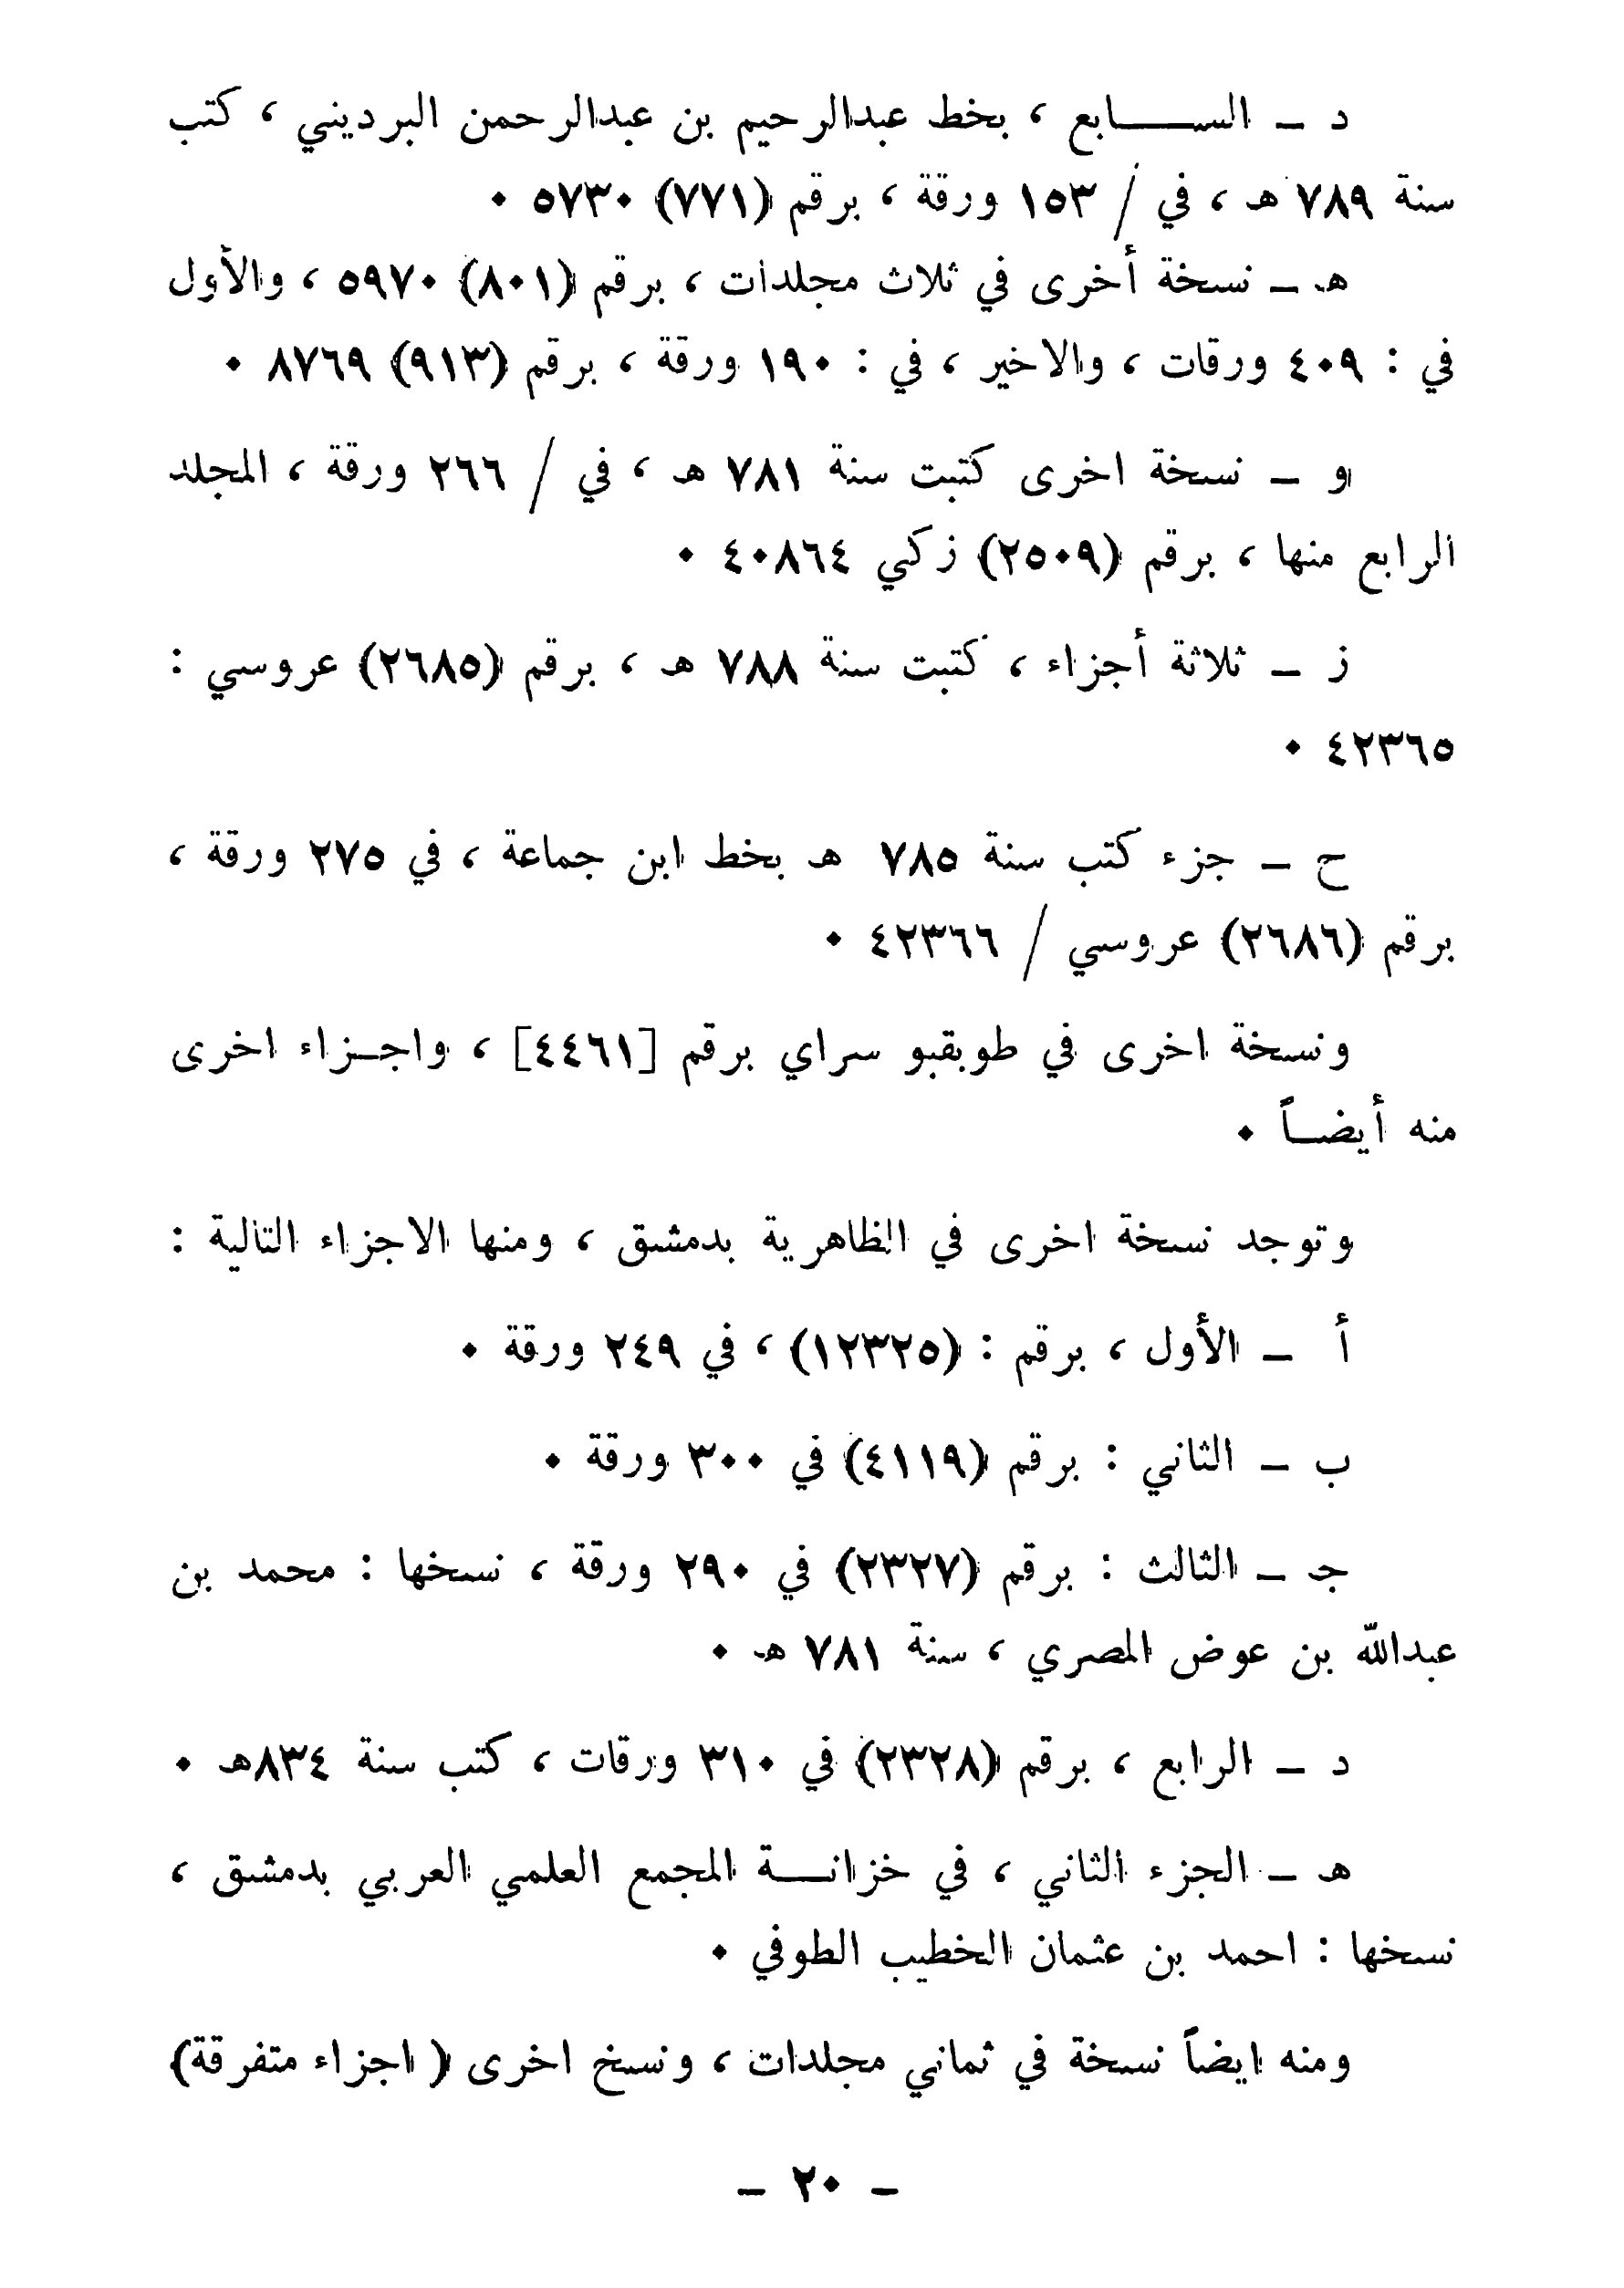 د – الســـابع ، بخط عبدالرحيم بن عبدالرحمن البرديني ، كتب
سنة ٧٨٩ هـ ، في / ١٥٣ ورقة ، برقم (٧٧١) ٥٧٣٠ .
هـ – نسخة أخرى في ثلاث مجلدات ، برقم (٨٠١) ٥٩٧٠ ، والأول
في : ٤٠٩ ورقات ، والاخير ، في : ١٩٠ ورقة ، برقم (٩١٣) ٨٧٦٩ .
و – نسخة اخرى كتبت سنة ٧٨١ هـ ، في / ٢٦٦ ورقة ، المجلد
الرابع منها ، برقم (٢٥٠٩) زكي ٤٠٨٦٤ .
ز – ثلاثة أجزاء ، كتبت سنة ٧٨٨ هـ ، برقم (٢٦٨٥) عروسي :
٤٢٣٦٥ .
ح – جزء كتب سنة ٧٨٥ هـ بخط ابن جماعة ، في ٢٧٥ ورقة ،
برقم (٢٦٨٦) عروسي / ٤٢٣٦٦ .
ونسخة اخرى في طوبقبو سراي برقم [٤٤٦١] ، واجـزاء اخرى
منه أيضـاً .
وتوجد نسخة اخرى في الظاهرية بدمشق ، ومنها الاجزاء التالية :
أ – الأول ، برقم : (١٢٣٢٥) ، في ٢٤٩ ورقة .
ب – الثاني : برقم (٤١١٩) في ٣٠٠ ورقة .
جـ – الثالث : برقم (٢٣٢٧) في ٢٩٠ ورقة ، نسخها : محمد بن
عبدالله بن عوض المصري ، سنة ٧٨١ هـ .
د – الرابع ، برقم (٢٣٢٨) في ٣١٠ ورقات ، كتب سنة ٨٣٤هـ .
هـ – الجزء الثاني ، في خزانـــة المجمع العلمي العربي بدمشق ،
نسخها : احمد بن عثمان الخطيب الطوفي .
ومنه ايضاً نسخة في ثماني مجلدات ، ونسخ اخرى ( اجزاء متفرقة)
– ٢٠ –